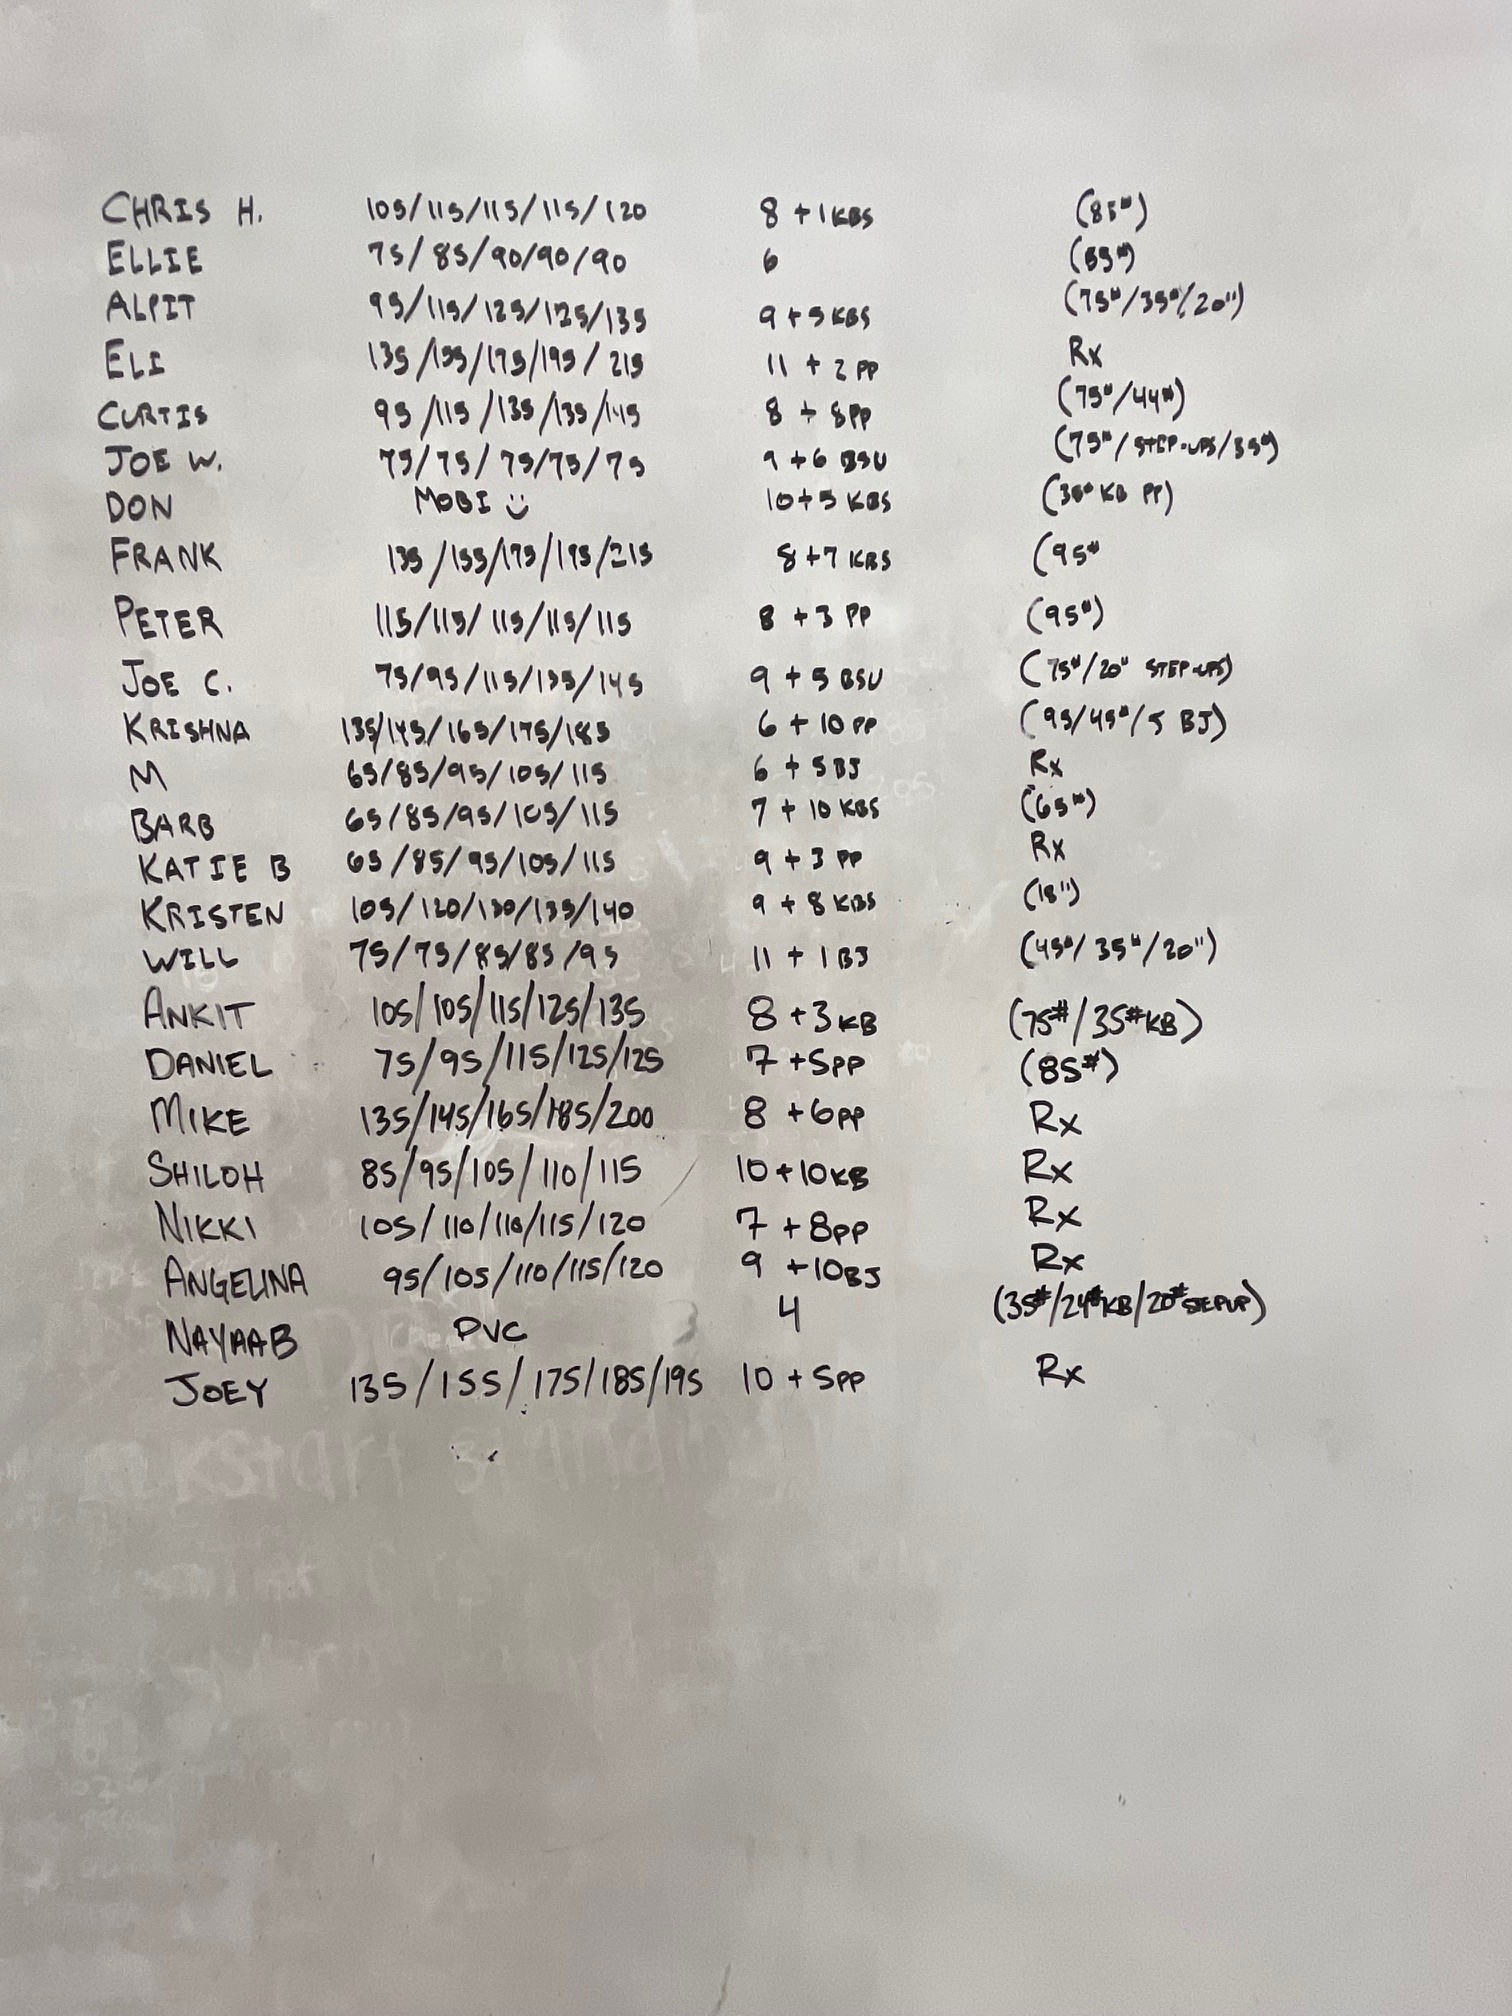 CHRIS H. 105/115/115/115/120 8 + 1 KBS (85#)
ELLIE 75/85/90/90/90 6 (65#)
ALPIT 95/115/125/125/135 9 + 5 KBS (75#/35#/20")
ELI 135/155/175/195/215 11 + 2 PP Rx
CURTIS 95/115/135/135/145 8 + 8 PP (75#/44#)
JOE W. 75/75/75/75/75 9 + 6 BSU (75#/STEP-UPS/35#)
DON MOBI :) 10 + 5 KBS (35# KB PP)
FRANK 135/155/175/195/215 8 + 7 KBS (95#
PETER 115/115/115/115/115 8 + 3 PP (95#)
JOE C. 75/95/115/135/145 9 + 5 BSU (75#/20" STEP-UPS)
KRISHNA 135/145/165/175/185 6 + 10 PP (95/45#/5 BJ)
M 65/85/95/105/115 6 + 5 BJ Rx
BARB 65/85/95/105/115 7 + 10 KBS (65#)
KATIE B 65/85/95/105/115 9 + 3 PP Rx
KRISTEN 105/120/130/135/140 9 + 8 KBS (18")
WILL 75/75/85/85/95 11 + 1 BJ (45#/35#/20")
ANKIT 105/105/115/125/135 8 + 3 KB (75#/35# KB)
DANIEL 75/95/115/125/125 7 + 5 PP (85#)
MIKE 135/145/165/185/200 8 + 6 PP Rx
SHILOH 85/95/105/110/115 10 + 10 KB Rx
NIKKI 105/110/110/115/120 7 + 8 PP Rx
ANGELINA 95/105/110/115/120 9 + 10 BJ Rx
NAYAAB PVC 4 (35#/24# KB/20# SEPUP)
JOEY 135/155/175/185/195 10 + 5 PP Rx